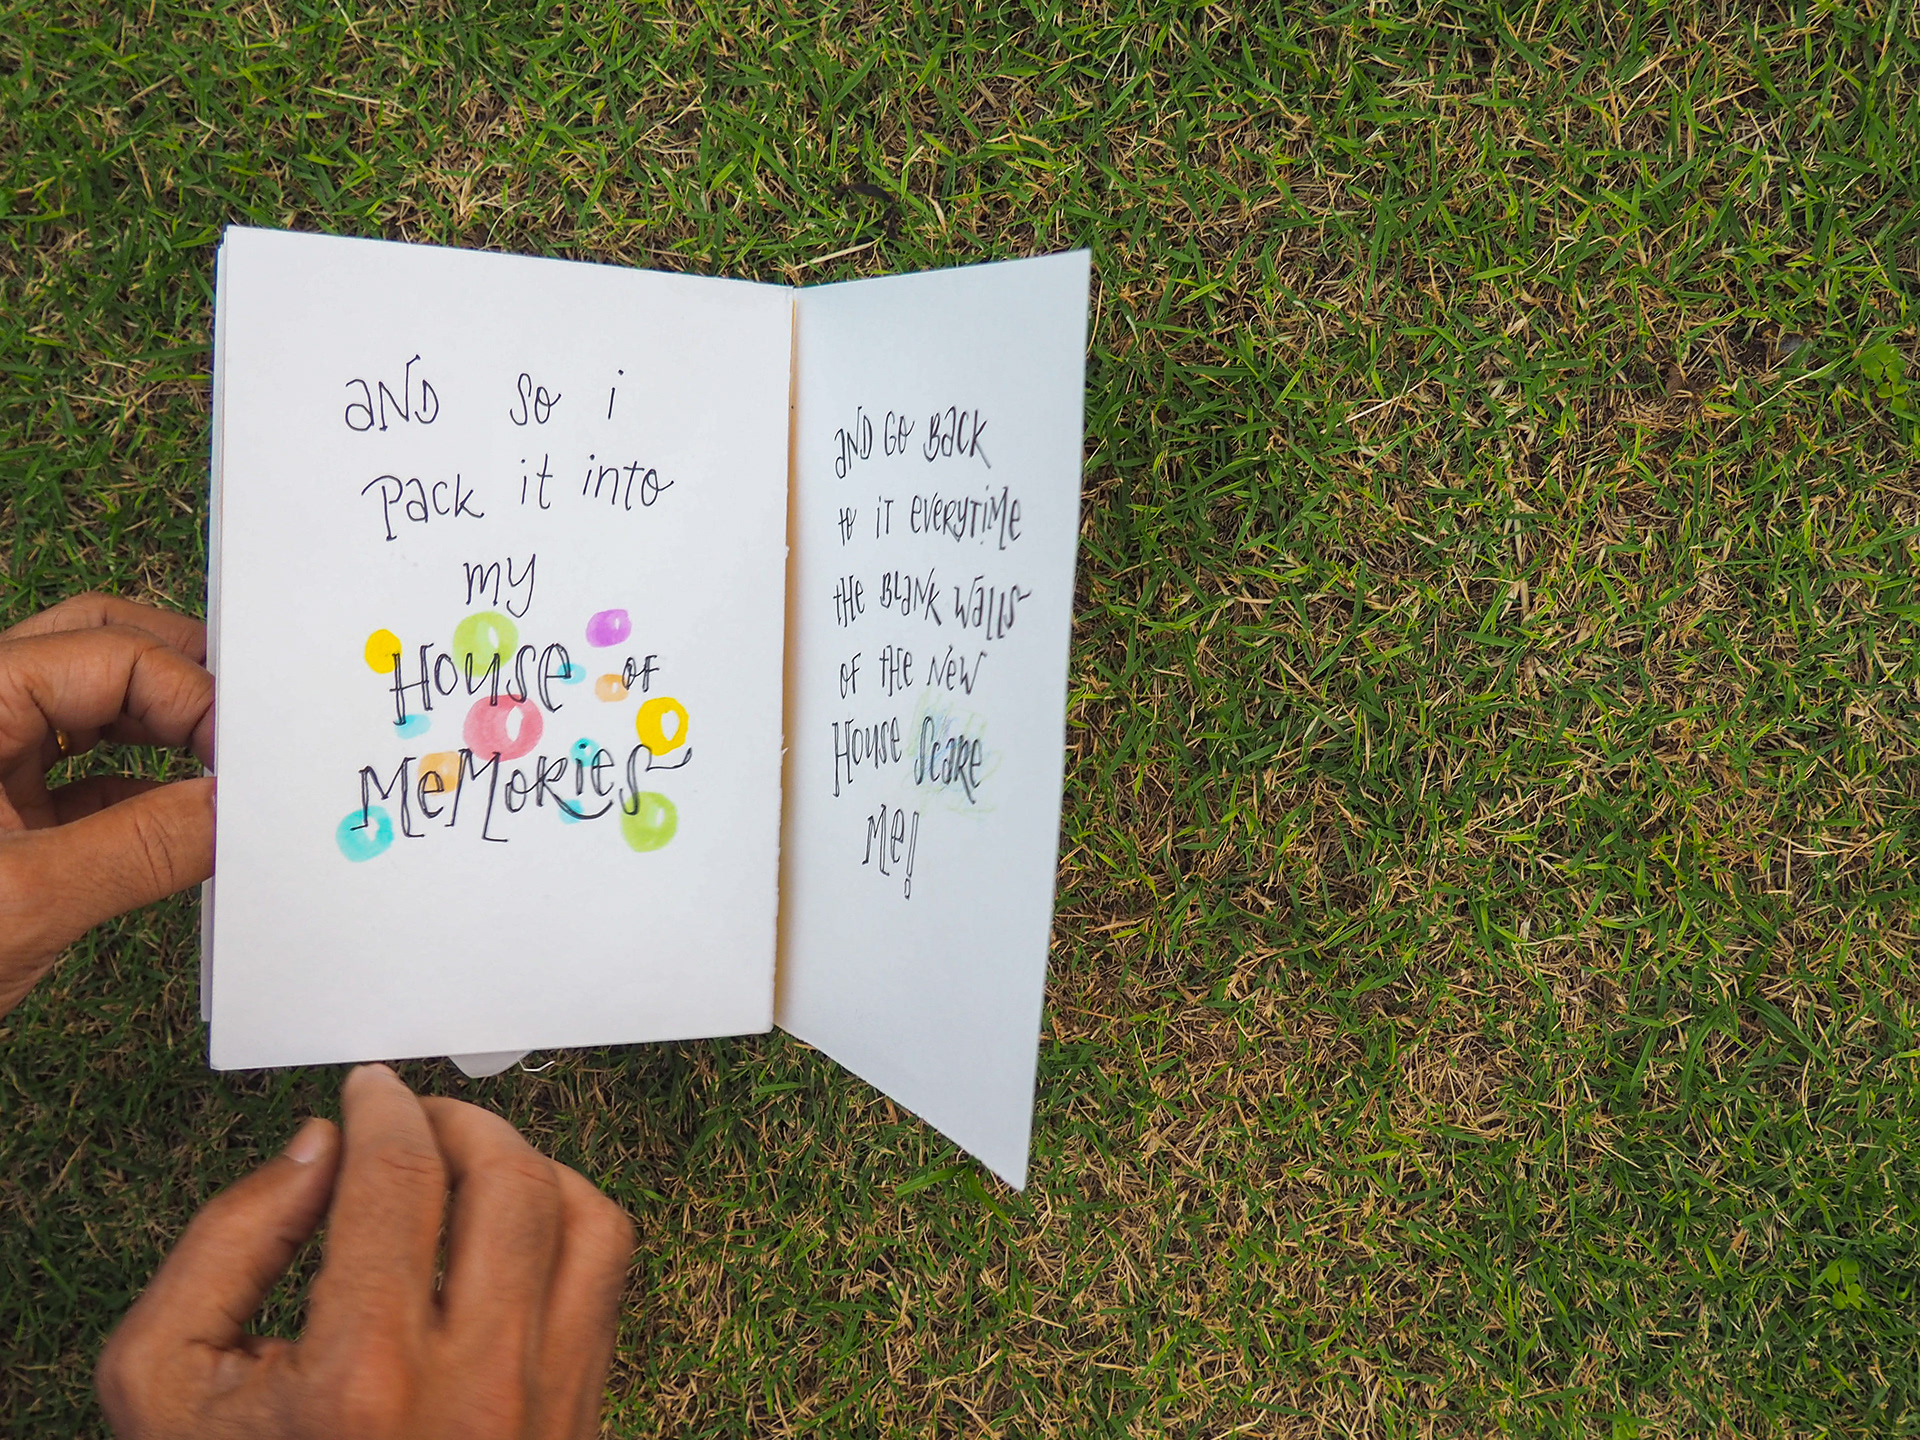 aND so i
Pack it into
my
House of
MeMoRies
aND Go Back
to iT eveRyTiMe
tHe BLaNK walls
of tHe New
House Scare
Me!